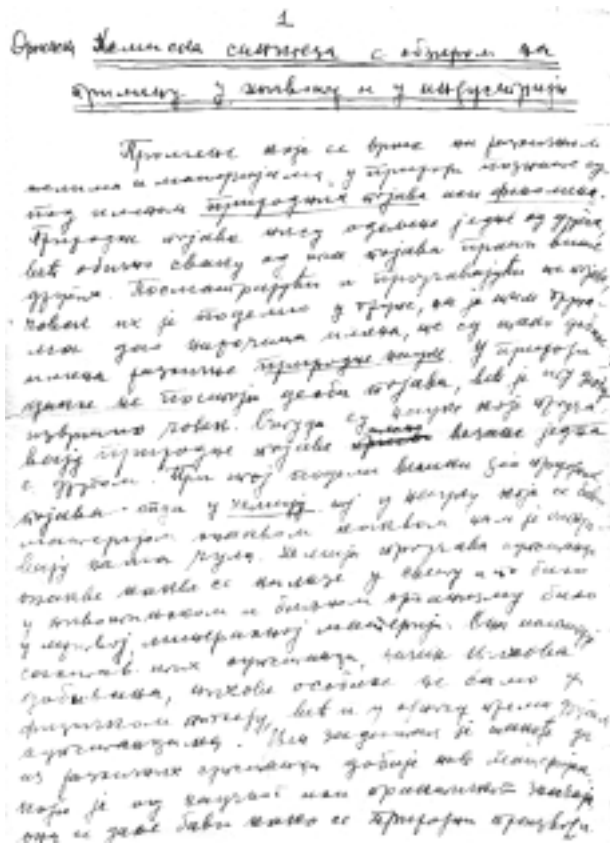 1
Хемиска синтеза с обзиром на
примену у животу и у индустрији
Промене које се врше на различним
телима и материјама у природи познате су
под именом природних појава или феномена.
Природне појаве нису одељене једне од других,
већ обично свака од њих појава прати више
других. Посматрајући и проучавајући те појаве,
човек их је поделио у групе, па је тим група-
ма дао нарочита имена, те су тако добиле
имена различне природне науке. У природи
не постоји деоба појава, већ је њу
извршио човек. Отуда су науке које проуча-
вају природне појаве везане једна
с другом. При тој подели велики део природних
појава у хемију тј у науку која се бави
материјом онаквом каквом нам је откри-
вају наша чула. Хемија проучава супстанце
онакве какве се налазе у свету па то било
у животињском и биљном организму било
у мртвој, минералној материји. Она испитује
састав тих супстанца, начин њихова
добивања, њихове особине не само у
физичком погледу, већ и у односу према другим
супстанцама. Њен задатак је такође да
из различних супстанца добије нове материје,
које је од научног или практичног значаја
она се даље бави како се природни производи